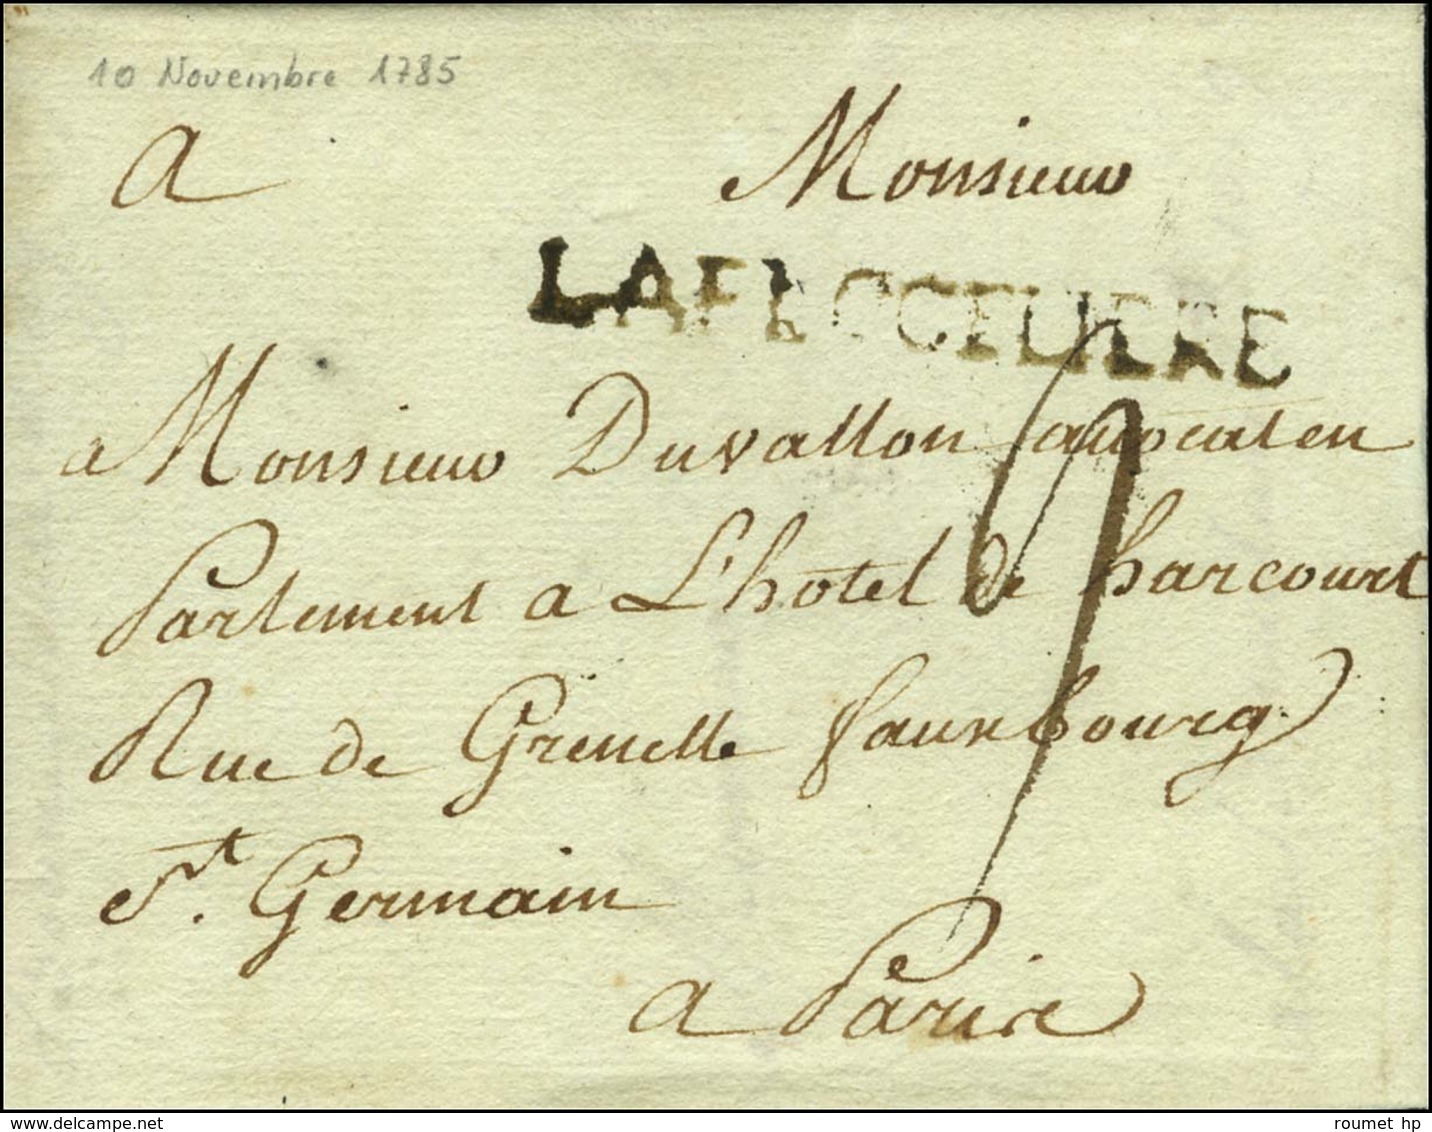 10 Novembre 1785
A Monsieur
LAFLOCELIERE
a Monsieur Duvallon avocat en
Parlement a L'hôtel de harcourt
Rue de Grenelle faux bourg
St. Germain
a Paris
roumet hp